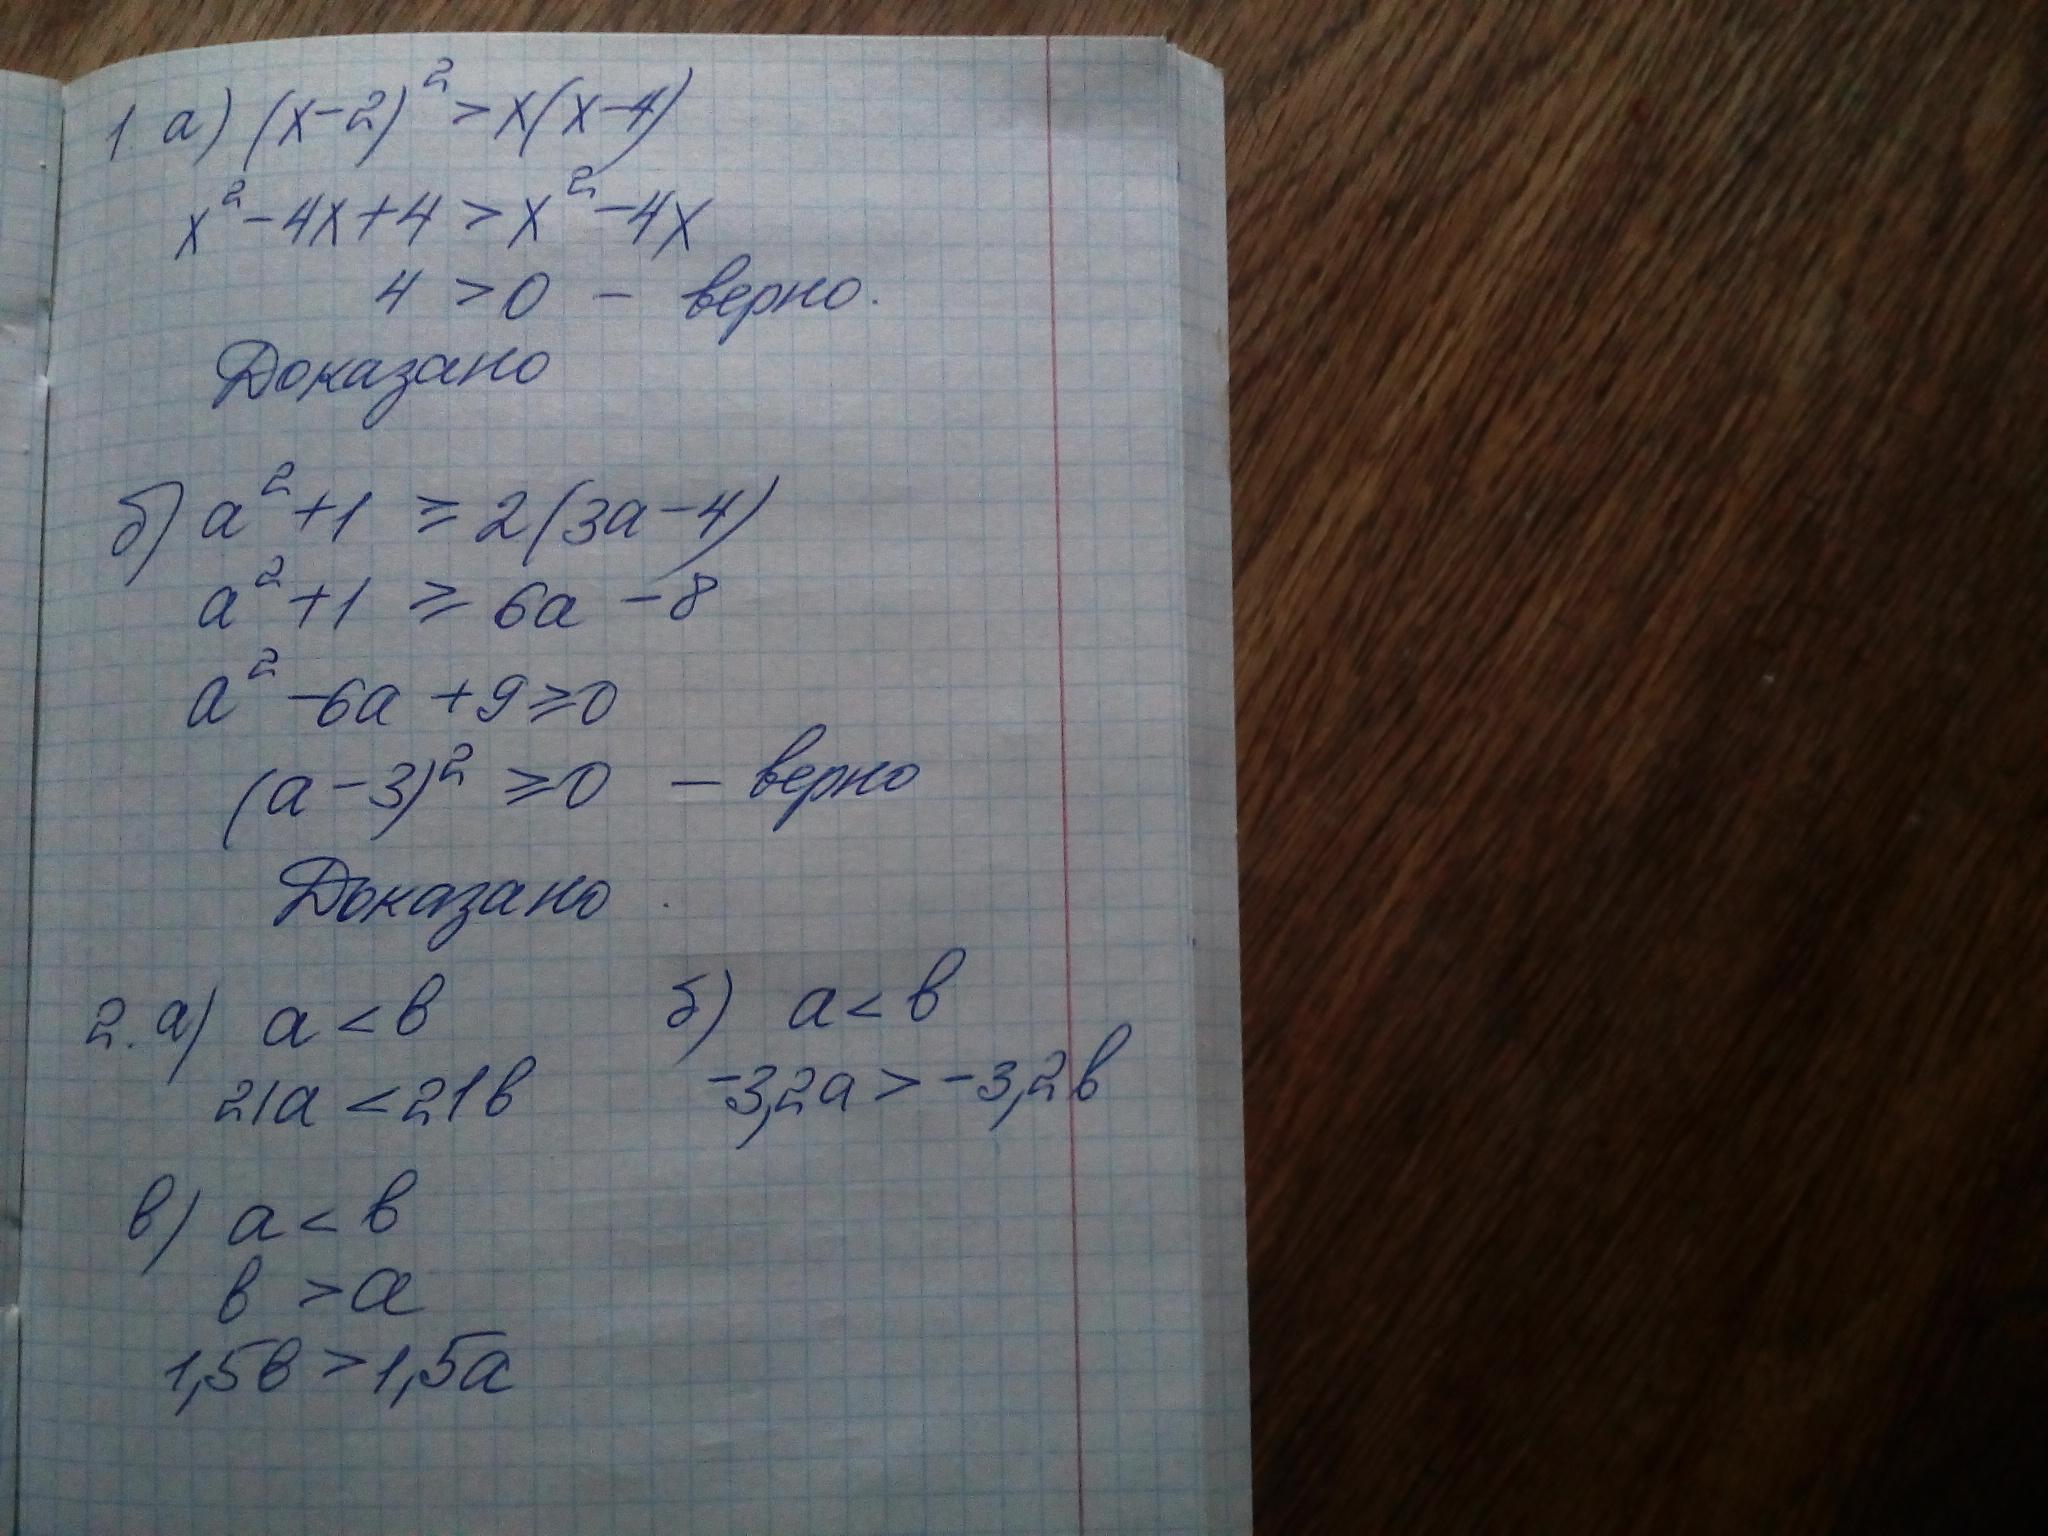 1. а) (x-2)² > x(x-4)
x² - 4x + 4 > x² - 4x
4 > 0 - верно.
Доказано
б) a² + 1 ⩾ 2(3a - 4)
a² + 1 ⩾ 6a - 8
a² - 6a + 9 ⩾ 0
(a - 3)² ⩾ 0 - верно
Доказано.
2. а) a < в б) a < в
21a < 21в -3,2a > -3,2в
в) a < в
в > a
1,5в > 1,5a